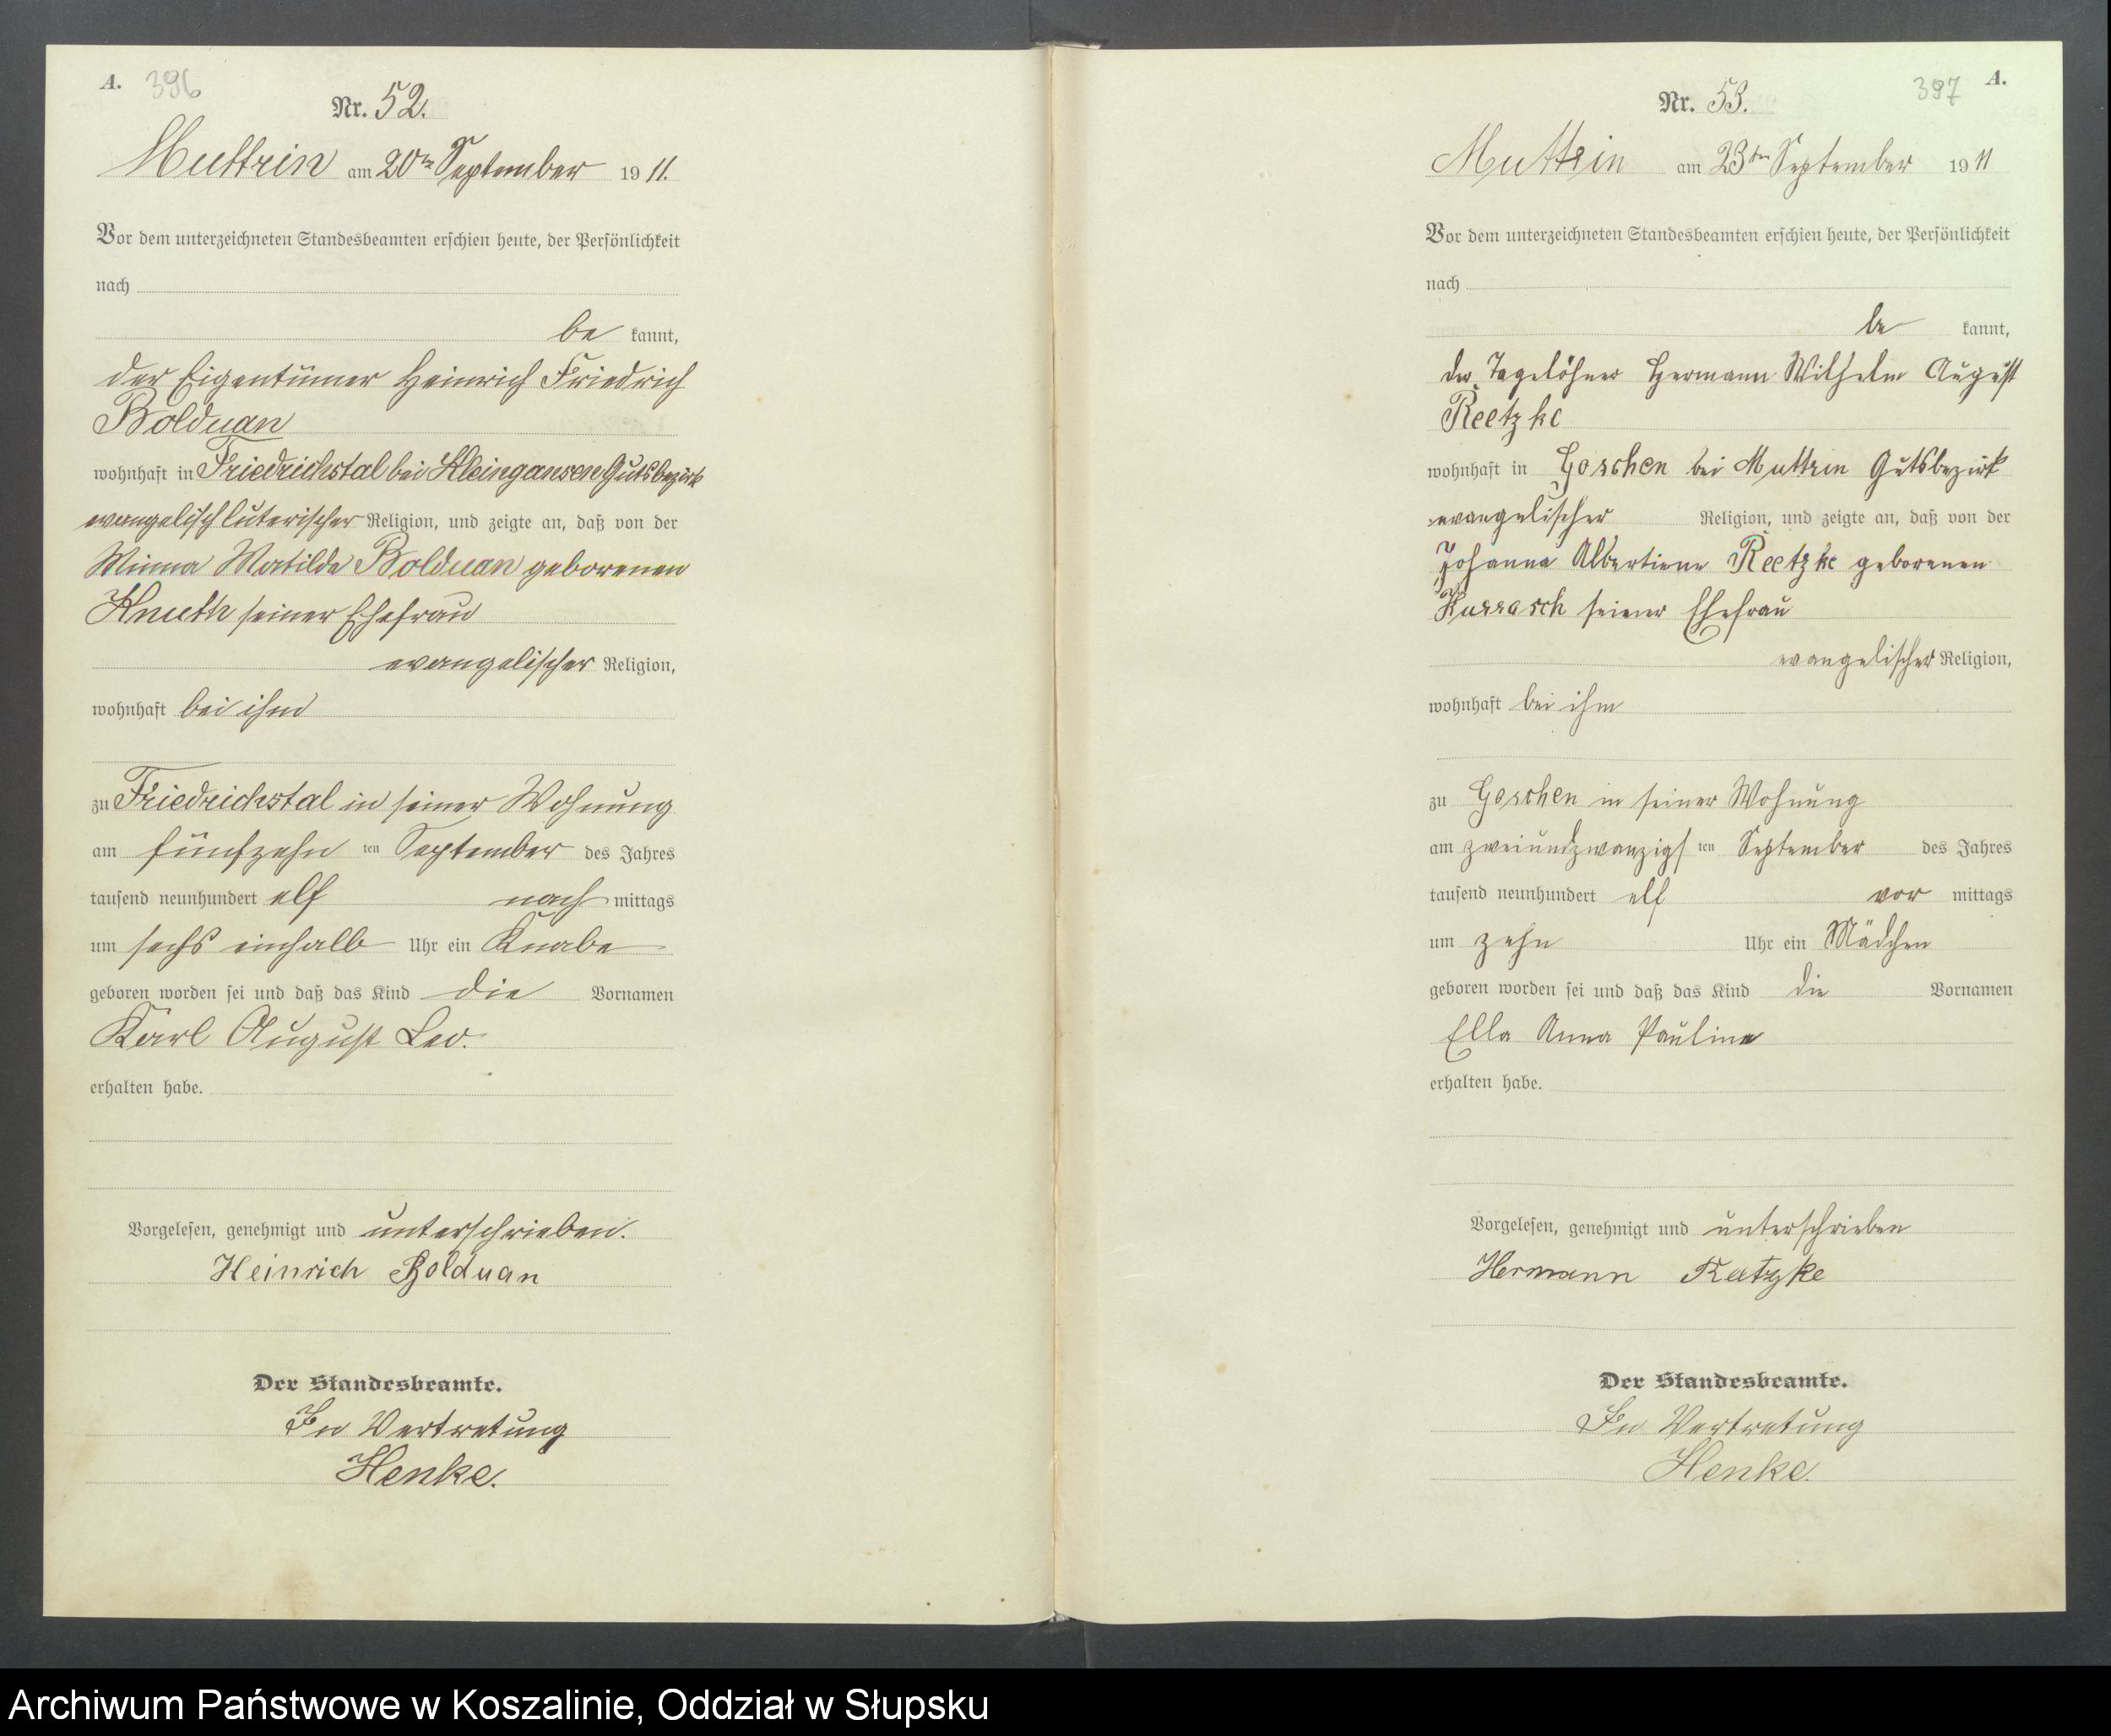 A. 396
Nr. 52.
Muttrin am 20ten September 1911.
Vor dem unterzeichneten Standesbeamten erschien heute, der Persönlichkeit
nach
be kannt,
der Eigentümer Heinrich Friedrich
Bolduan
wohnhaft in Friedrichstal bei Kleingansen Gutsbezirk
evangelisch luterischer Religion, und zeigte an, daß von der
Minna Matilde Bolduan geborenen
Knuth seiner Ehefrau
evangelischer Religion,
wohnhaft bei ihm
zu Friedrichstal in seiner Wohnung
am fünfzehn ten September des Jahres
tausend neunhundert elf nach mittags
um sechs einhalb Uhr ein Knabe
geboren worden sei und daß das Kind die Vornamen
Karl August Leo.
erhalten habe.
Vorgelesen, genehmigt und unterschrieben.
Heinrich Bolduan
Der Standesbeamte.
In Vertretung
Henke.
397 A.
Nr. 53.
Muttrin am 23ten September 1911
Vor dem unterzeichneten Standesbeamten erschien heute, der Persönlichkeit
nach
be kannt,
der Tagelöhner Hermann Wilhelm August
Reetzke
wohnhaft in Goschen bei Muttrin Gutsbezirk
evangelischer Religion, und zeigte an, daß von der
Johanna Albertiene Reetzke geborenen
Kussasch seiner Ehefrau
evangelischer Religion,
wohnhaft bei ihm
zu Goschen in seiner Wohnung
am zweiundzwanzigs ten September des Jahres
tausend neunhundert elf vor mittags
um zehn Uhr ein Mädchen
geboren worden sei und daß das Kind die Vornamen
Ella Anna Pauline
erhalten habe.
Vorgelesen, genehmigt und unterschrieben
Hermann Reetzke
Der Standesbeamte.
In Vertretung
Henke.
Archiwum Państwowe w Koszalinie, Oddział w Słupsku